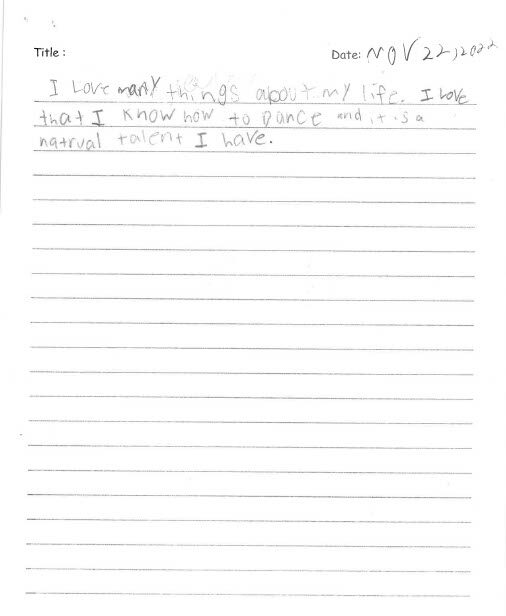 Title : Date: NOV 22, 2022
I Love many things about my life. I love
that I know how to Dance and it is a
natrual talent I have.